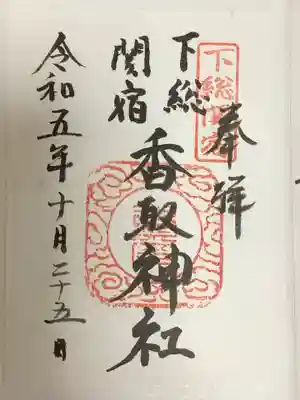 奉拝
下総
関宿
香取神社
令和五年十月二十五日
下総関宿